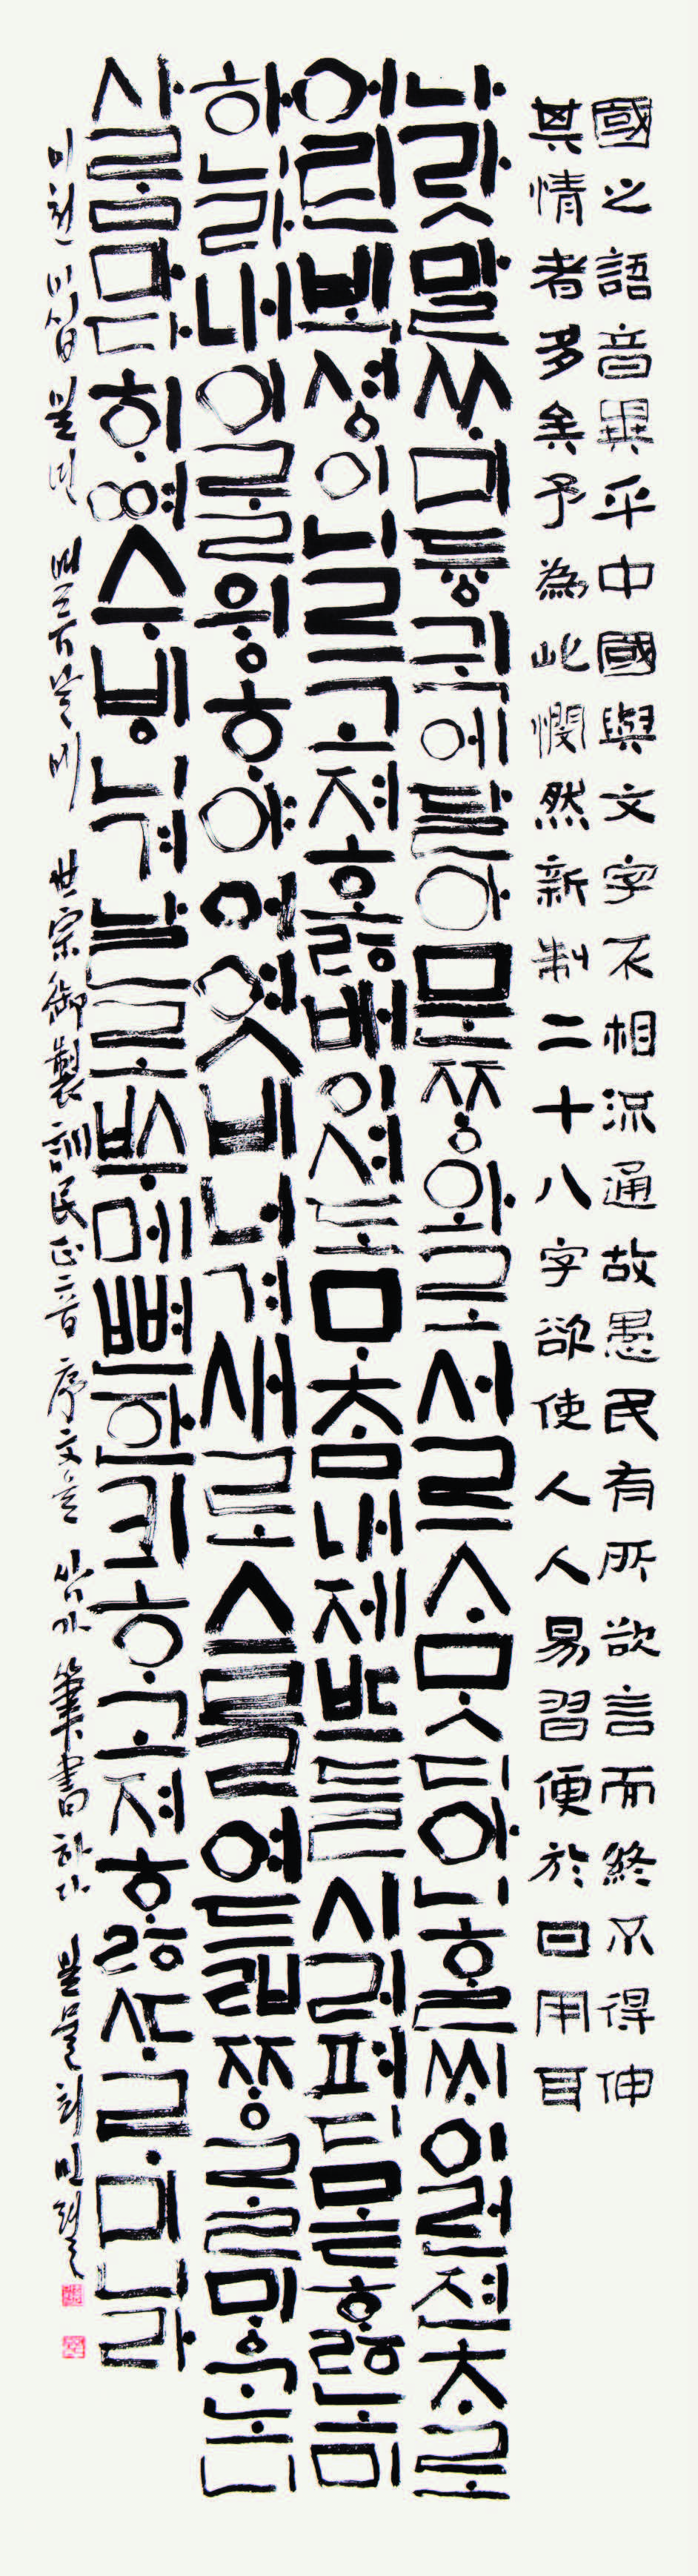 國之語音異乎中國與文字不相流通故愚民有所欲言而終不得伸
其情者多矣予為此憫然新制二十八字欲使人人易習便於日用耳
나랏말ᄊᆞ미듕귁에달아문ᄍᆞᆼ와로서르ᄉᆞᄆᆞᆺ디아니ᄒᆞᆯᄊᆡ이런젼ᄎᆞ로
어린ᄇᆡᆨ셩이니르고져호ᇙ배이셔도ᄆᆞᄎᆞᆷ내제ᄠᅳ들시러펴디몯ᄒᆞᇙ노미
하니라내이ᄅᆞᆯ윙ᄒᆞ야어엿비너겨새로스믈여듧ᄍᆞᆼᄅᆞᆯᄆᆡᇰᄀᆞ노니
사ᄅᆞᆷ마다ᄒᆡᅇᅧ수ᄫᅵ니겨날로ᄡᅮ메뼌한킈ᄒᆞ고져ᄒᆞᇙᄯᆞᄅᆞ미니라
이천이십 世宗御製訓民正音 序文을 삼가 筆書하다 늘물 최민렬